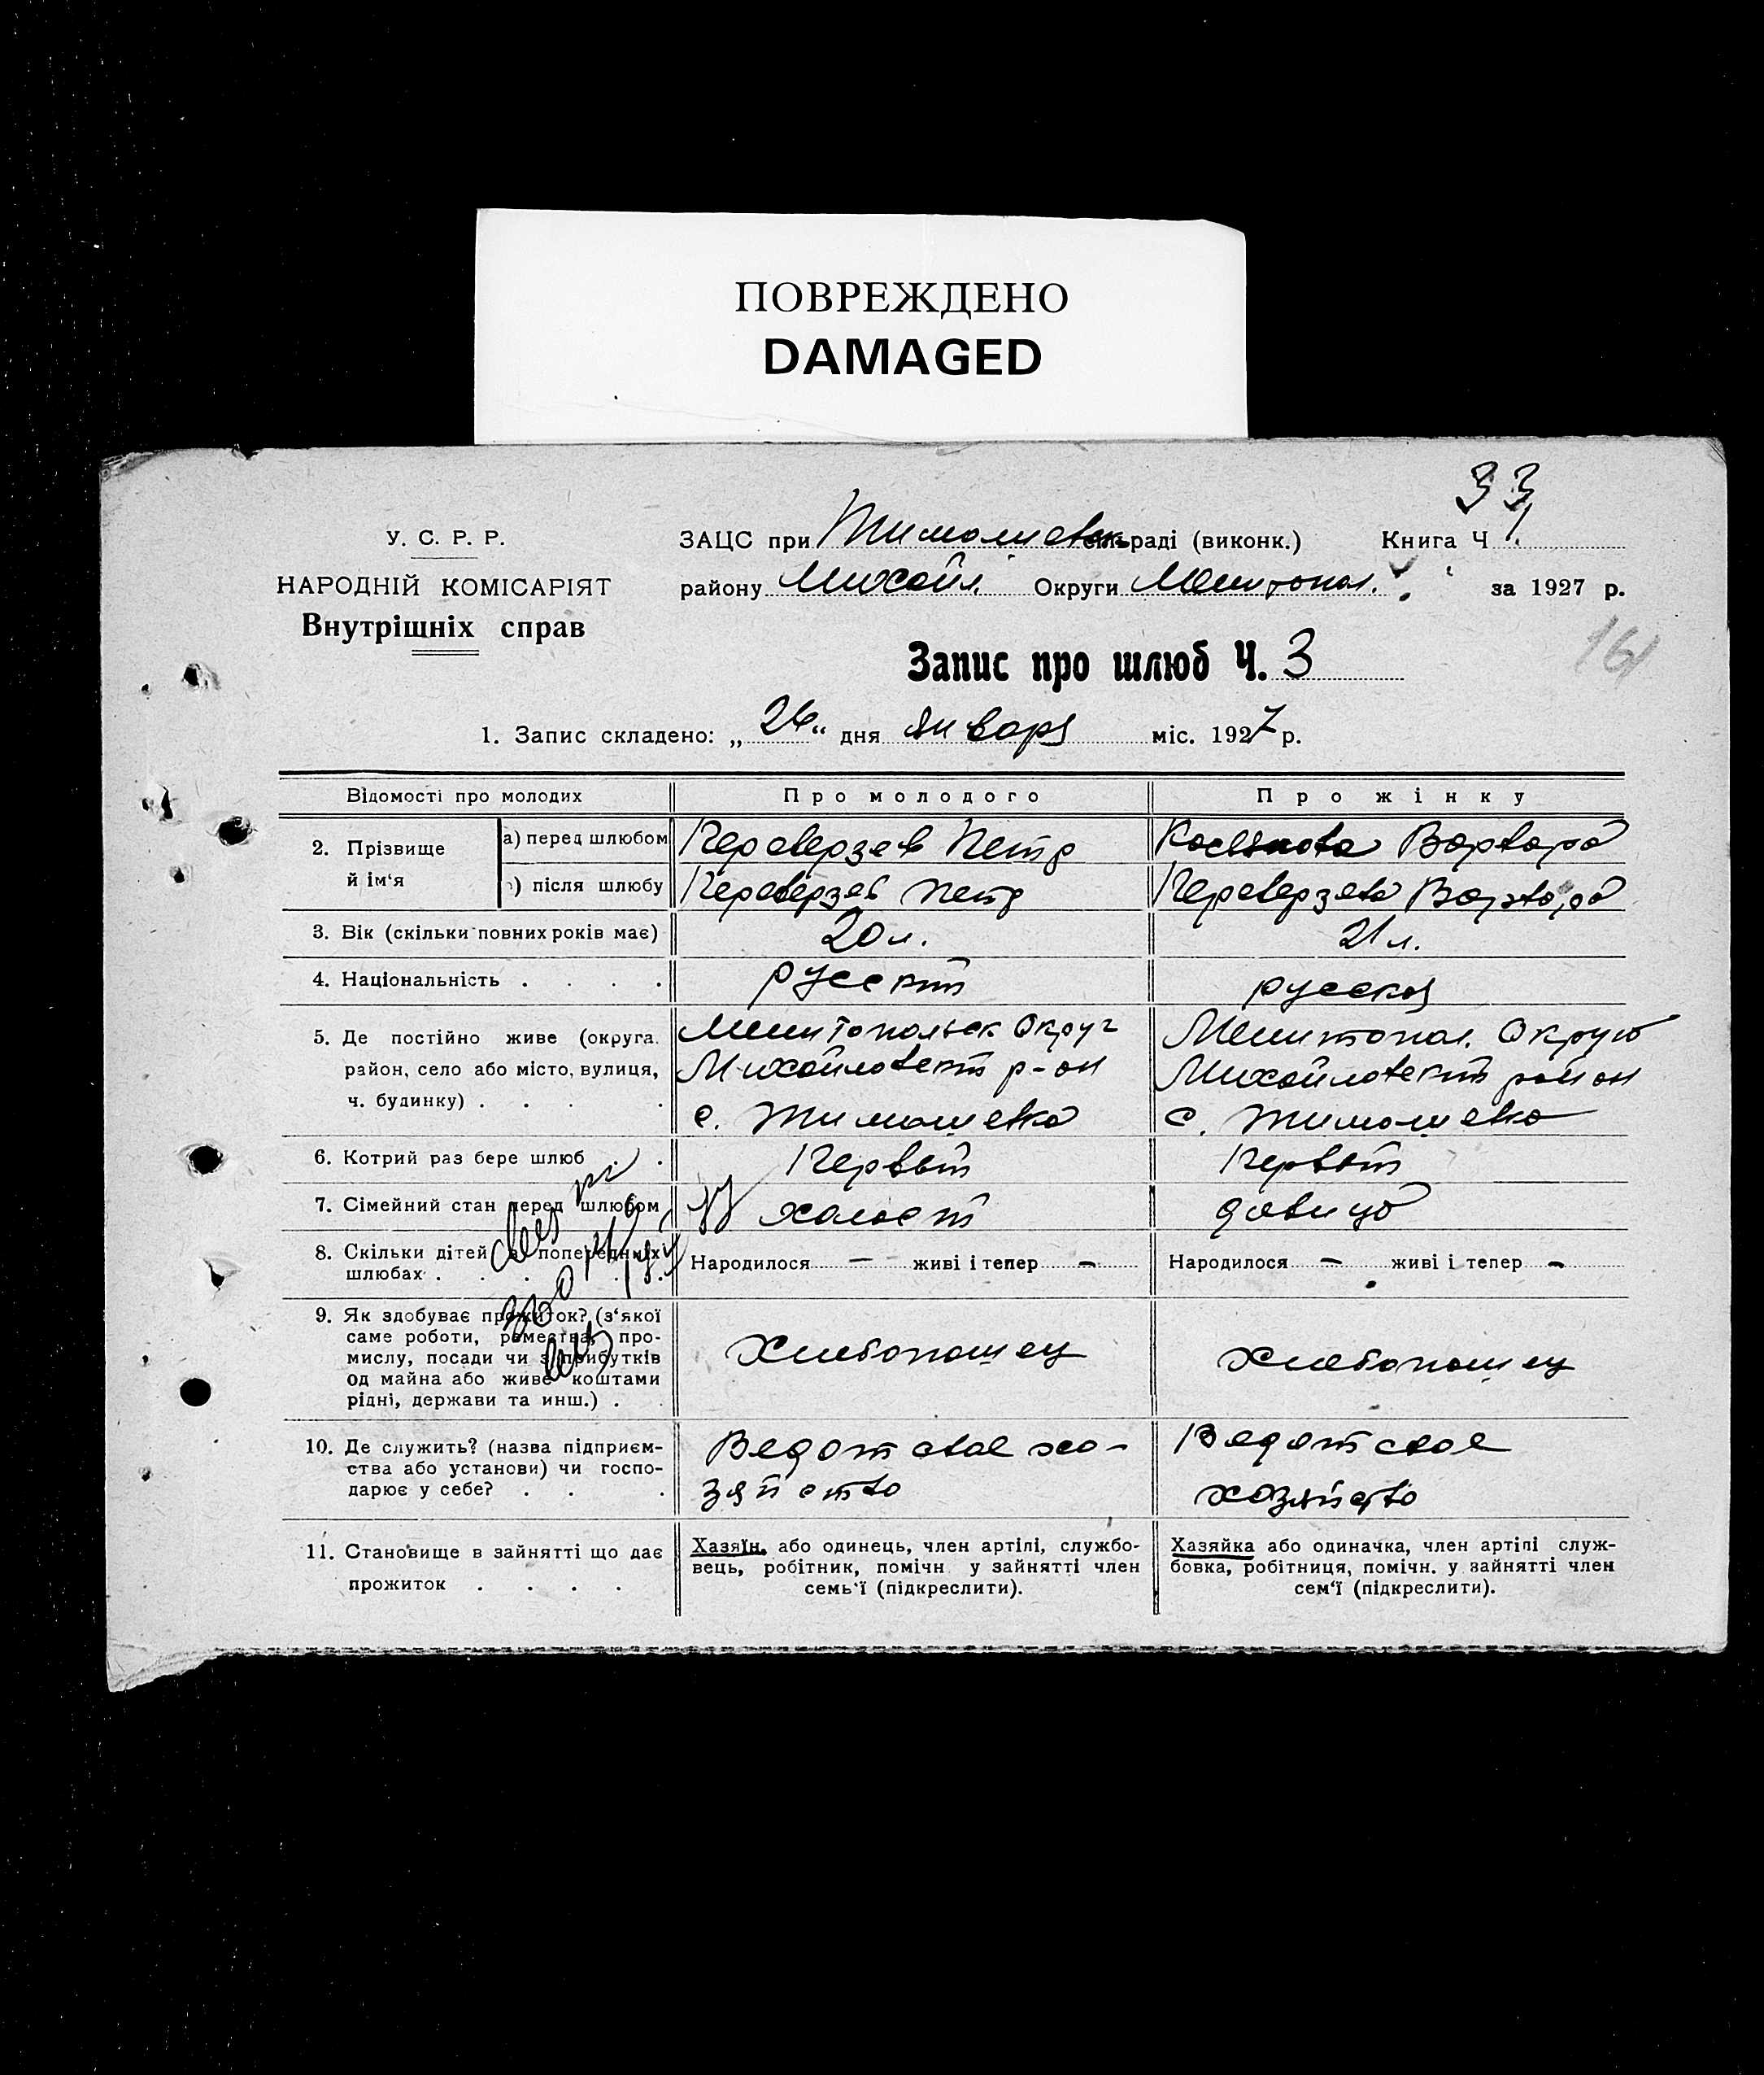 ПОВРЕЖДЕНО
DAMAGED
33
У. С. Р. Р.
НАРОДНІЙ КОМІСАРІЯТ
Внутрішніх справ
ЗАЦС при Тимошевск раді (виконк.) Книга Ч 1
району Михайл. Округи Мелитопол. за 1927 р.
161
Запис про шлюб Ч. 3
1. Запис складено: „26“ дня января міс. 1927 р.
Відомості про молодих Про молодого Про жінку
2. Прізвище й ім‘я
а) перед шлюбом Переверзев Петр Варвара
) після шлюбу Переверзев Петр Переверзева Варвара
3. Вік (скільки повних років має) 20 л. 21 л.
4. Національність . . . . русский русская
5. Де постійно живе (округа. район, село або місто, вулиця, ч. будинку) . . .
Мелитопольск Округ
Михайловский р-он
с. Тимошевка
Мелитопол. Округа
Михайловский район
с. Тимошевка
6. Котрий раз бере шлюб . . Первый Первый
7. Сімейний стан перед шлюбом холост девица
8. Скільки дітей в попередніх шлюбах . . . . .
Народилося — живі і тепер —
Народилося — живі і тепер —
9. Як здобуває прожиток? (з‘якої
саме роботи, ремества, про-
мислу, посади чи з прибутків
од майна або живе коштами
рідні, держави та инш.) .
Хлебопашец Хлебопашец
10. Де служить? (назва підприєм-
ства або установи) чи госпо-
дарює у себе? . . .
Ведет свое хо-
зяйство
Ведет свое
хозяйство
11. Становище в зайнятті що дає
прожиток . . . .
Хазяїн, або одинець, член артілі, службо-
вець, робітник, помічн у зайнятті член
семь‘ї (підкреслити).
Хазяйка або одиначка, член артілі служ-
бовка, робітниця, помічн. у зайнятті член
сем‘ї (підкреслити).